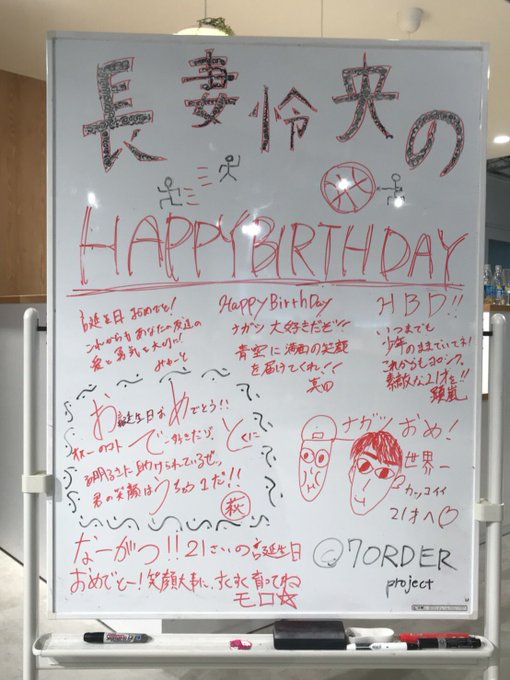 長妻怜央の
HAPPY BIRTHDAY
お誕生日おめでとう!
これからもあなたの友達の
愛と勇気を大切に!
みゅーと
Happy BirthDay
ナガツ 大好きだぞ!!
青空に満面の笑顔
を届けてくれ!!
真田
HBD!!
いつまでも
少年のままでいてネ!
これからもヨロシク。
素敵な21才を!!
顕嵐
お誕生日おめでとう!!
で
とくに
明るさに助けられているぜっ
君の笑顔はうちゅう1だ!!
萩
ナガツ おめ!
世界一
カッコイイ
21才へ
なーがつ!!21さいの誕生日
おめでとー!笑顔大事に、すくすく育ってね
モロ☆
©7ORDER
project